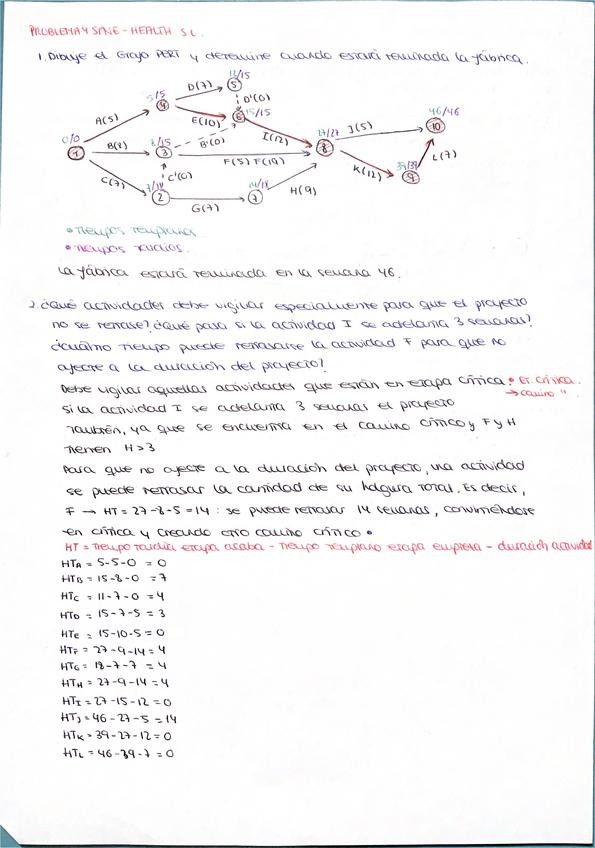 PROBLEMA 4 SANE - HEALTH S.L.
1. Dibuje el Grafo PERT y determine cuando estará terminada la fábrica.
12/15
D(7)
5
5/5
4
D'(0)
A(5)
E(10)
15/15
6
46/46
0/0
27/27
J(5)
10
8/15
B'(0)
I(12)
1
B(8)
3
8
F(5) F(19)
L(7)
C'(0)
K(12)
39/39
9
C(7)
7/11
14/18
H(9)
2
G(7)
7
• Tiempos tempranos
• Tiempos tardíos.
La fábrica estará terminada en la semana 46.
2. ¿Qué actividades debe vigilar especialmente para que el proyecto
no se retrase? ¿Qué pasa si la actividad I se adelanta 3 semanas?
¿Cuánto tiempo puede retrasarse la actividad F para que no
afecte a la duración del proyecto?
Debe vigilar aquellas actividades que están en etapa crítica • Et. crítica.
→ camino "
Si la actividad I se adelanta 3 semanas el proyecto
también, ya que se encuentra en el camino crítico y F y H
tienen H>3
Para que no afecte a la duración del proyecto, una actividad
se puede retrasar la cantidad de su holgura total. Es decir,
F → HT = 27-8-5 = 14 : se puede retrasar 14 semanas, convirtiéndose
en crítica y creando otro camino crítico •
HT = Tiempo tardío etapa acaba - Tiempo temprano etapa empieza - duración actividad
HTA = 5-5-0 = 0
HTB = 15-8-0 = 7
HTC = 11-7-0 = 4
HTD = 15-7-5 = 3
HTE = 15-10-5 = 0
HTF = 27-9-14 = 4
HTG = 18-7-7 = 4
HTH = 27-9-14 = 4
HTI = 27-15-12 = 0
HTJ = 46-27-5 = 14
HTK = 39-27-12 = 0
HTL = 46-39-7 = 0